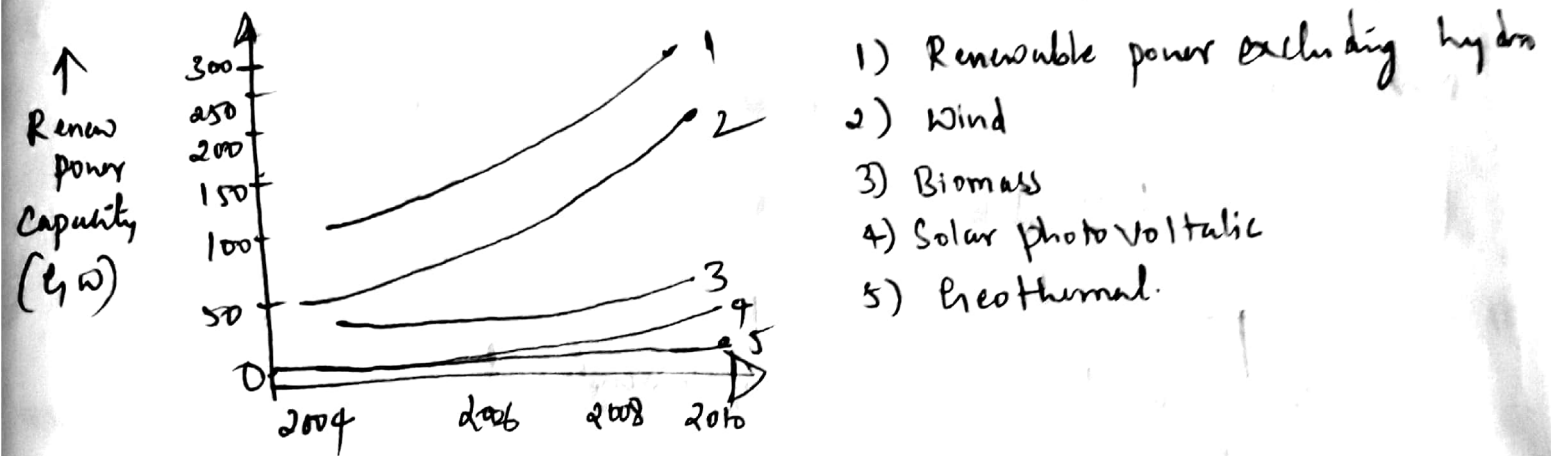 ↑
Renew
power
Capacity
(GW)
300
250
200
150
100
50
0
2004 2006 2008 2010
1
2
3
4
5
1) Renewable power excluding hydro
2) Wind
3) Biomass
4) Solar photovoltalic
5) Geothermal.